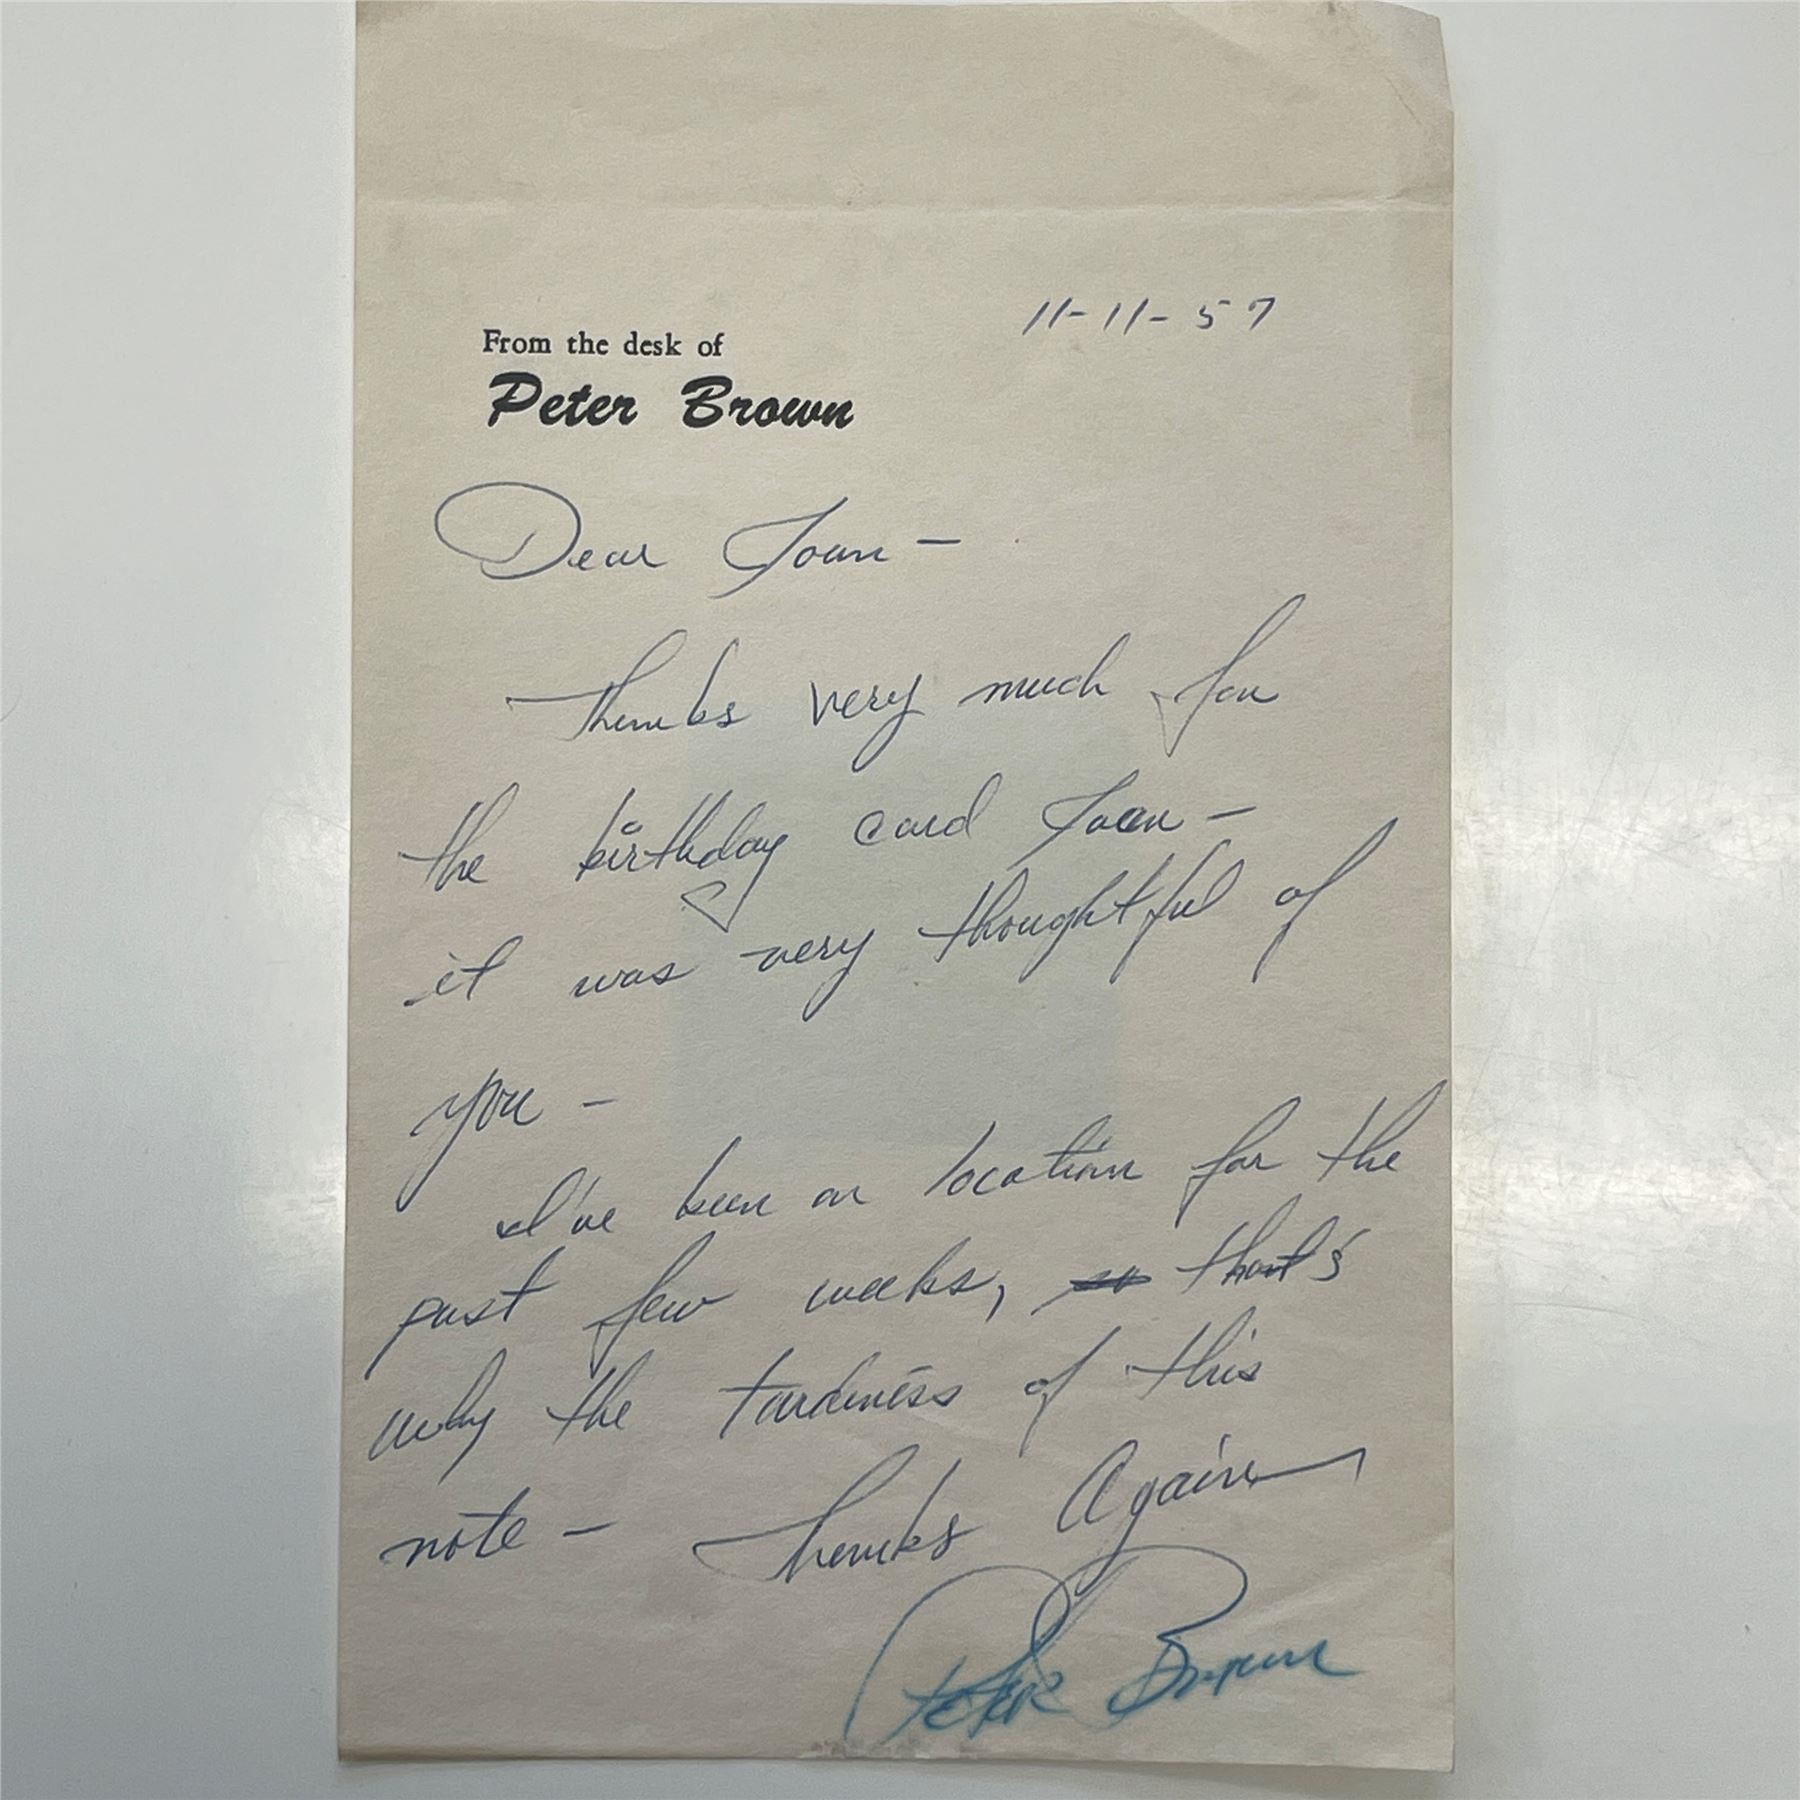 11-11-57
From the desk of
Peter Brown
Dear Joan -
Thanks very much for
the birthday card Joan -
it was very thoughtful of
you -
I've been on location for the
past few weeks, so that's
why the tardiness of this
note - Thanks Again
Peter Brown